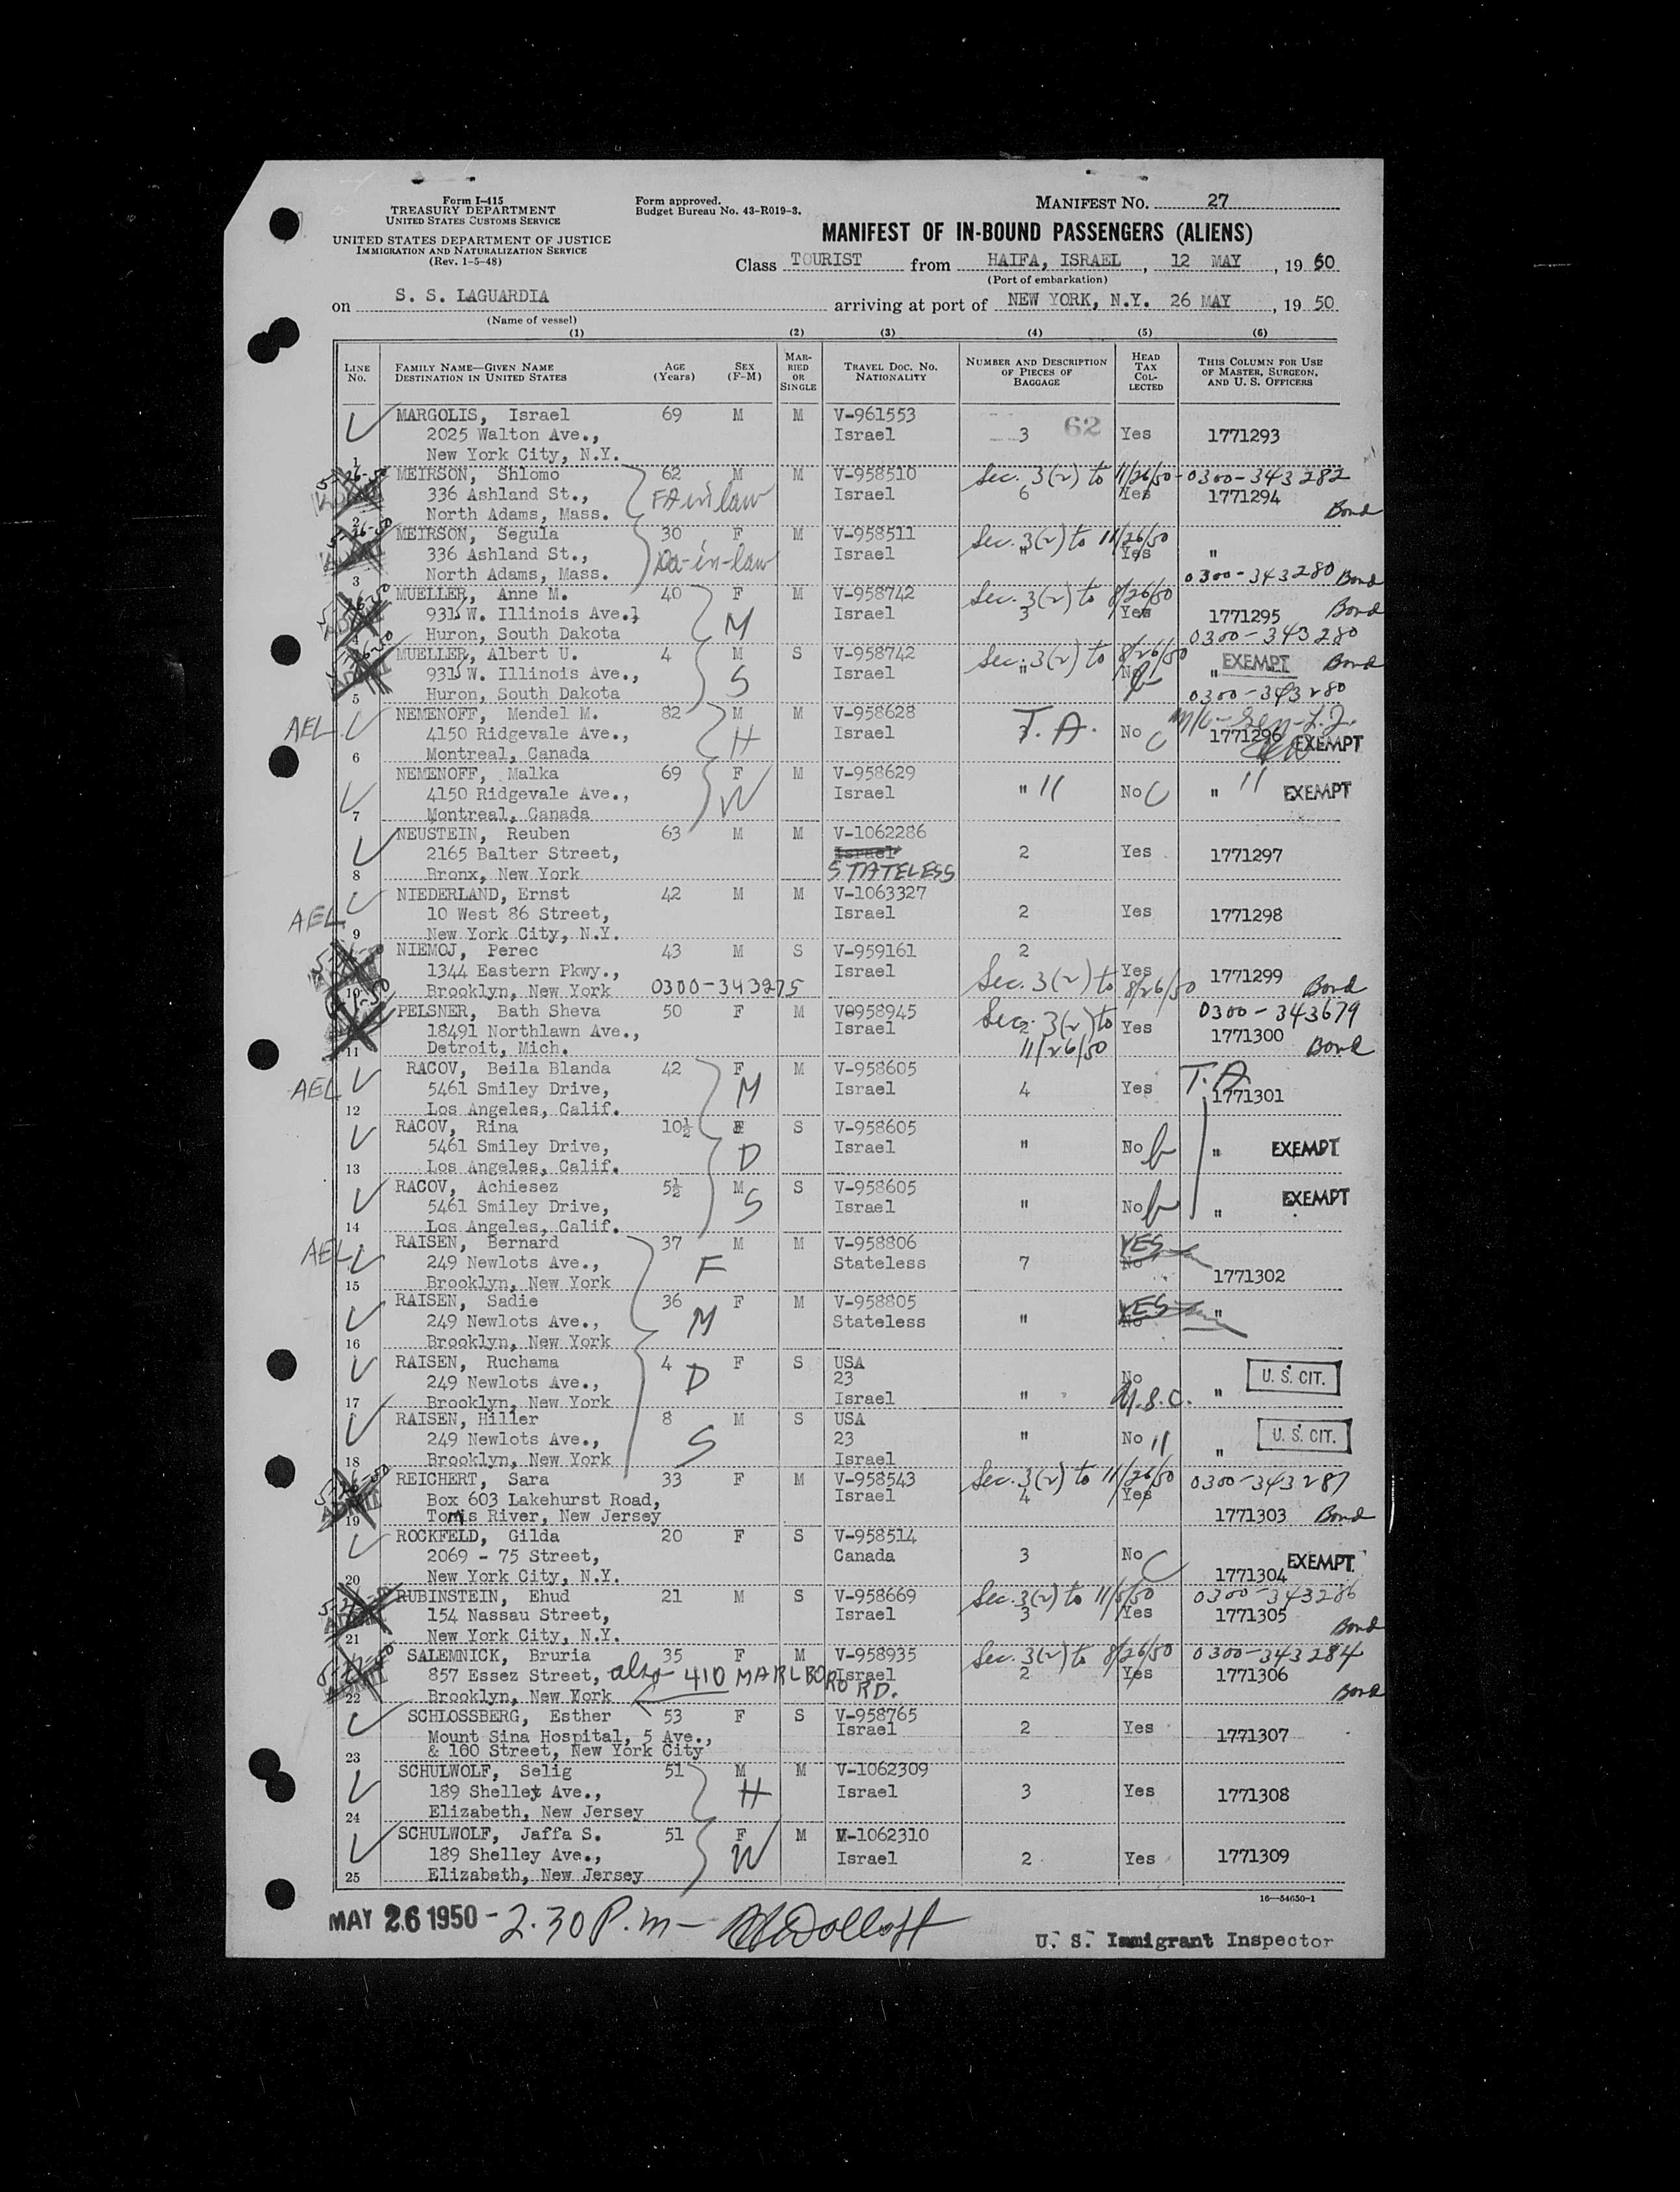 Form I-415
TREASURY DEPARTMENT
UNITED STATES CUSTOMS SERVICE
UNITED STATES DEPARTMENT OF JUSTICE
IMMIGRATION AND NATURALIZATION SERVICE
(Rev. 1-5-48)
Form approved.
Budget Bureau No. 43-R019-3.
MANIFEST NO. 27
MANIFEST OF IN-BOUND PASSENGERS (ALIENS)
Class TOURIST from HAIFA, ISRAEL, 12 MAY, 19 50
(Port of embarkation)
on S. S. LAGUARDIA arriving at port of NEW YORK, N.Y. 26 MAY, 19 50
(Name of vessel)
(1) (2) (3) (4) (5) (6)
LINE NO. FAMILY NAME—GIVEN NAME DESTINATION IN UNITED STATES AGE (Years) SEX (F-M) MARRIED OR SINGLE TRAVEL DOC. NO. NATIONALITY NUMBER AND DESCRIPTION OF PIECES OF BAGGAGE HEAD TAX COLLECTED THIS COLUMN FOR USE OF MASTER, SURGEON, AND U. S. OFFICERS
MARGOLIS, Israel 69 M M V-961553
2025 Walton Ave., Israel 3 62 Yes 1771293
1 New York City, N.Y.
MEIRSON, Shlomo 62 M M V-958510 Sec. 3(2) to 11/26/50-0300-343282
336 Ashland St., FA in law Israel 6 Yes 1771294
2 North Adams, Mass. Bond
MEIRSON, Segula 30 F M V-958511 Sec. 3(2) to 11/26/50
336 Ashland St., Da-in-law Israel " Yes "
3 North Adams, Mass. 0300-343280 Bond
MUELLER, Anne M. 40 F M V-958742 Sec. 3(2) to 8/26/50
931 W. Illinois Ave., M Israel 3 Yes 1771295 Bond
4 Huron, South Dakota 0300-343280
MUELLER, Albert U. 4 M S V-958742 Sec. 3(2) to 8/26/50 EXEMPT Bond
931 W. Illinois Ave., S Israel " No "
5 Huron, South Dakota 0300-343280
AEL NEMENOFF, Mendel M. 82 M M V-958628 T. A.
4150 Ridgevale Ave., H Israel No C 1771296 EXEMPT
6 Montreal, Canada
NEMENOFF, Malka 69 F M V-958629
4150 Ridgevale Ave., W Israel " 11 No C " 11 EXEMPT
7 Montreal, Canada
NEUSTEIN, Reuben 63 M M V-1062286
2165 Balter Street, Israel 2 Yes 1771297
8 Bronx, New York STATELESS
NIEDERLAND, Ernst 42 M M V-1063327
AEL 10 West 86 Street, Israel 2 Yes 1771298
9 New York City, N.Y.
NIEMOJ, Perec 43 M S V-959161 2
1344 Eastern Pkwy., Israel Sec. 3(2) to Yes 1771299
10 Brooklyn, New York 0300-343275 8/26/50 Bond
PELSNER, Bath Sheva 50 F M V0958945 Sec. 3(2) to 0300-343679
18491 Northlawn Ave., Israel 2 Yes 1771300
11 Detroit, Mich. 11/26/50 Bond
RACOV, Beila Blanda 42 F M V-958605 T. A
AEL 5461 Smiley Drive, M Israel 4 Yes 1771301
12 Los Angeles, Calif.
RACOV, Rina 10½ F S V-958605
5461 Smiley Drive, D Israel " No " EXEMPT
13 Los Angeles, Calif.
RACOV, Achiesez 5½ M S V-958605
5461 Smiley Drive, S Israel " No " EXEMPT
14 Los Angeles, Calif.
AEL RAISEN, Bernard 37 M M V-958806 YES
249 Newlots Ave., F Stateless 7 No
15 Brooklyn, New York 1771302
RAISEN, Sadie 36 F M V-958805 YES
249 Newlots Ave., M Stateless " No "
16 Brooklyn, New York
RAISEN, Ruchama 4 F S USA
249 Newlots Ave., D 23 No U. S. CIT.
17 Brooklyn, New York Israel " U.S.C. "
RAISEN, Hiller 8 M S USA
249 Newlots Ave., 23 " No 11 U. S. CIT.
18 Brooklyn, New York S Israel "
REICHERT, Sara 33 F M V-958543 Sec. 3(2) to 11/26/50 0300-343287
Box 603 Lakehurst Road, Israel 4 Yes
19 Toms River, New Jersey 1771303 Bond
ROCKFELD, Gilda 20 F S V-958514
2069 - 75 Street, Canada 3 No C EXEMPT
20 New York City, N.Y. 1771304
RUBINSTEIN, Ehud 21 M S V-958669 Sec. 3(2) to 11/5/50 0300-343286
154 Nassau Street, Israel 3 Yes 1771305
21 New York City, N.Y. Bond
SALEMNICK, Bruria 35 F M V-958935 Sec. 3(2) to 8/26/50 0300-343284
857 Essez Street, also 410 MARLBORO RD. Israel 2 Yes 1771306
22 Brooklyn, New York Bond
SCHLOSSBERG, Esther 53 F S V-958765
Mount Sina Hospital, 5 Ave., Israel 2 Yes 1771307
23 & 100 Street, New York City
SCHULWOLF, Selig 51 M M V-1062309
189 Shelley Ave., H Israel 3 Yes 1771308
24 Elizabeth, New Jersey
SCHULWOLF, Jaffa S. 51 F M V-1062310
189 Shelley Ave., W Israel 2 Yes 1771309
25 Elizabeth, New Jersey
16—54650-1
MAY 26 1950 - 2.30 P.m -
U. S. Immigrant Inspector